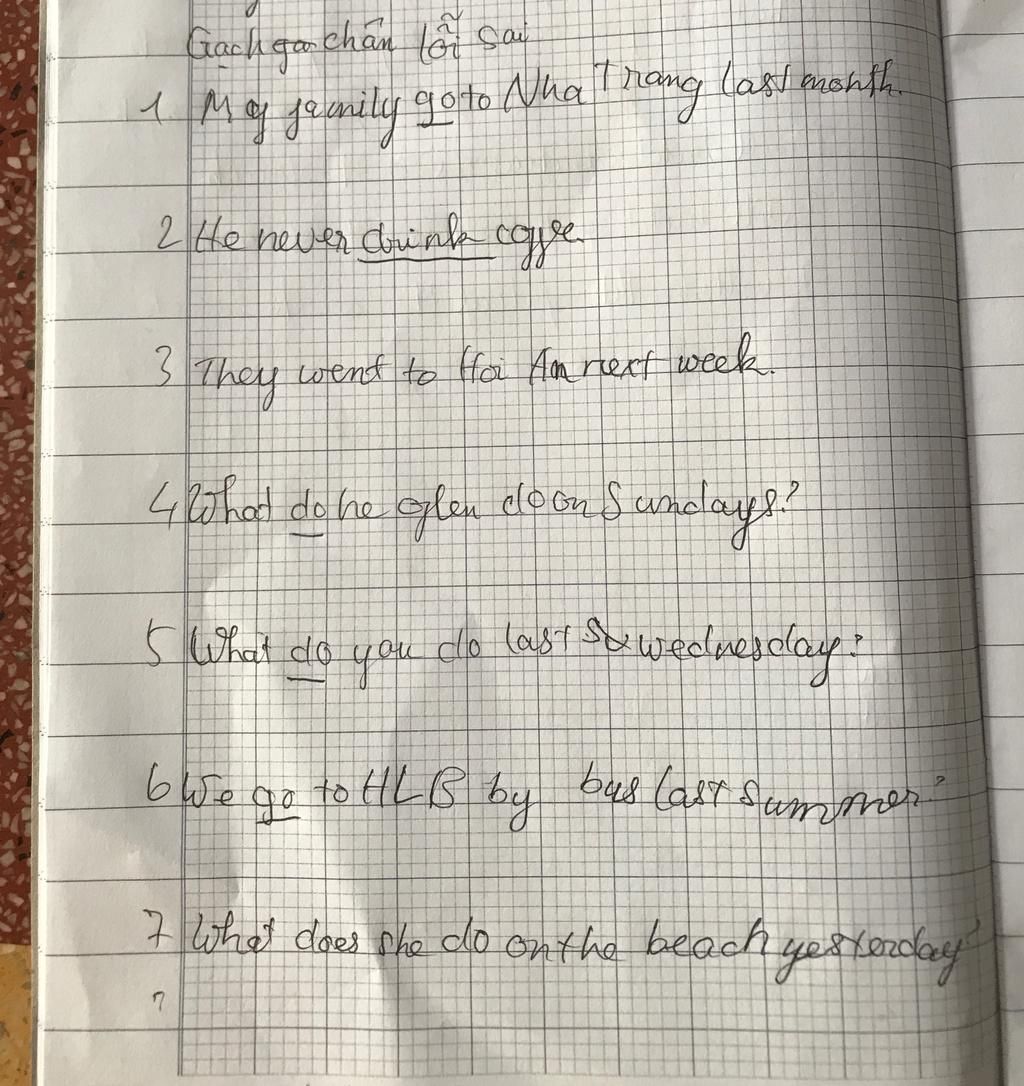 Gạch gơ chân lỗi sai
1 My family go to Nha Trang last month.
2 He never drink coffe.
3 They went to Hoi An next week.
4 What do he often do on Sundays?
5 What do you do last wednesday?
6 We go to HLB by bus last summer?
7 What does she do on the beach yesterday
?